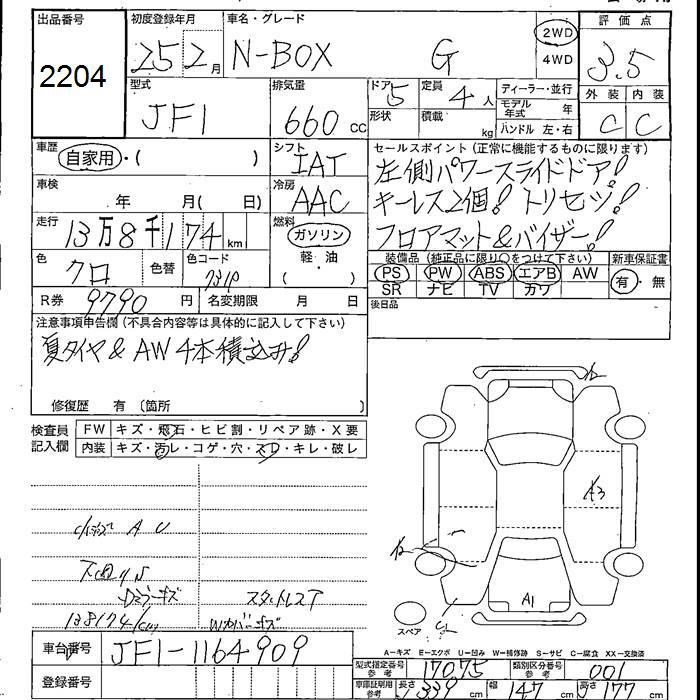 出品番号 初度登録年月 車名・グレード 評価点
2204 25 2月 N-BOX G 2WD 4WD 3.5
型式 排気量 ドア 定員 ディーラー・並行 外装 内装
JF1 660 cc 5 4人 モデル年式 年 C C
形状 積載 kg ハンドル 左・右
車歴 シフト セールスポイント(正常に機能するものに限ります)
自家用・( ) IAT 左側パワースライドドア!
車検 冷房 キーレス2個! トリセツ!
年 月( 日) AAC フロアマット&バイザー!
走行 燃料
13万8千174km ガソリン
軽・油
( )
色 色替 色コード 装備品(純正品に限り○をつけて下さい) 新車保証書
クロ 731P PS PW ABS エアB AW 有・無
SR ナビ TV カワ
R券 9790円 名変期限 月 日 後日品
注意事項申告欄(不具合内容等は具体的に記入して下さい)
夏タイヤ& AW 4本積込み!
修復歴 有 〔箇所 〕
検査員記入欄 FW キズ・飛石・ヒビ割・リペア跡・X要
内装 キズ・汚レ・コゲ・穴・スレ・キレ・破レ
A3
A U
スタットレスT
138174km
A1
スペア
A-キズ E-エクボ U-凹み W-補修跡 S-サビ C-腐食 XX-交換済
車台番号 JF1-1164909
登録番号
型式指定番号 参考 17075 類別区分番号 参考 001
車庫証明用 参考 長さ 339cm 幅 147cm 高さ 177cm